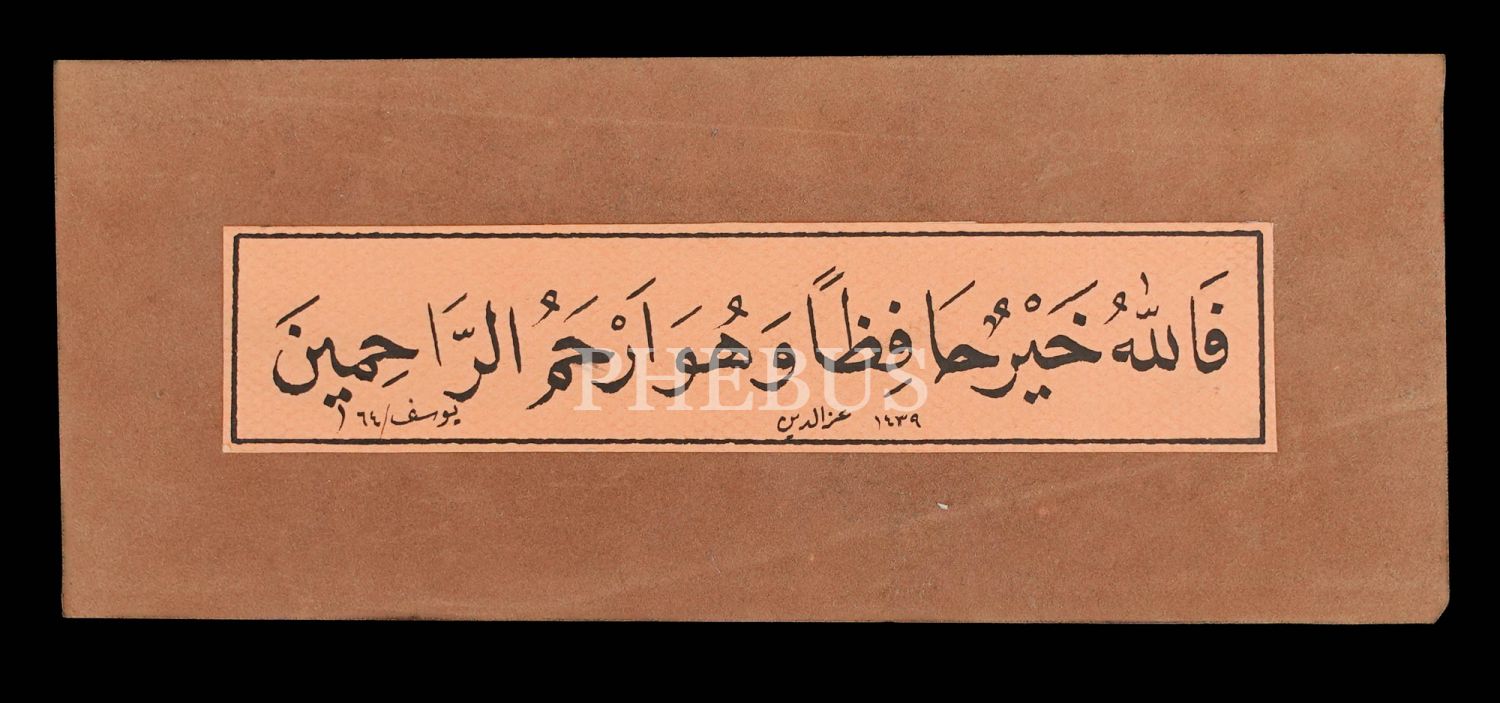 فَاللّٰهُ خَيْرٌ حَافِظًا وَهُوَ اَرْحَمُ الرَّاحِمِينَ
١٤٣٩ عزالدين يوسف/٦٤
PHEBUS